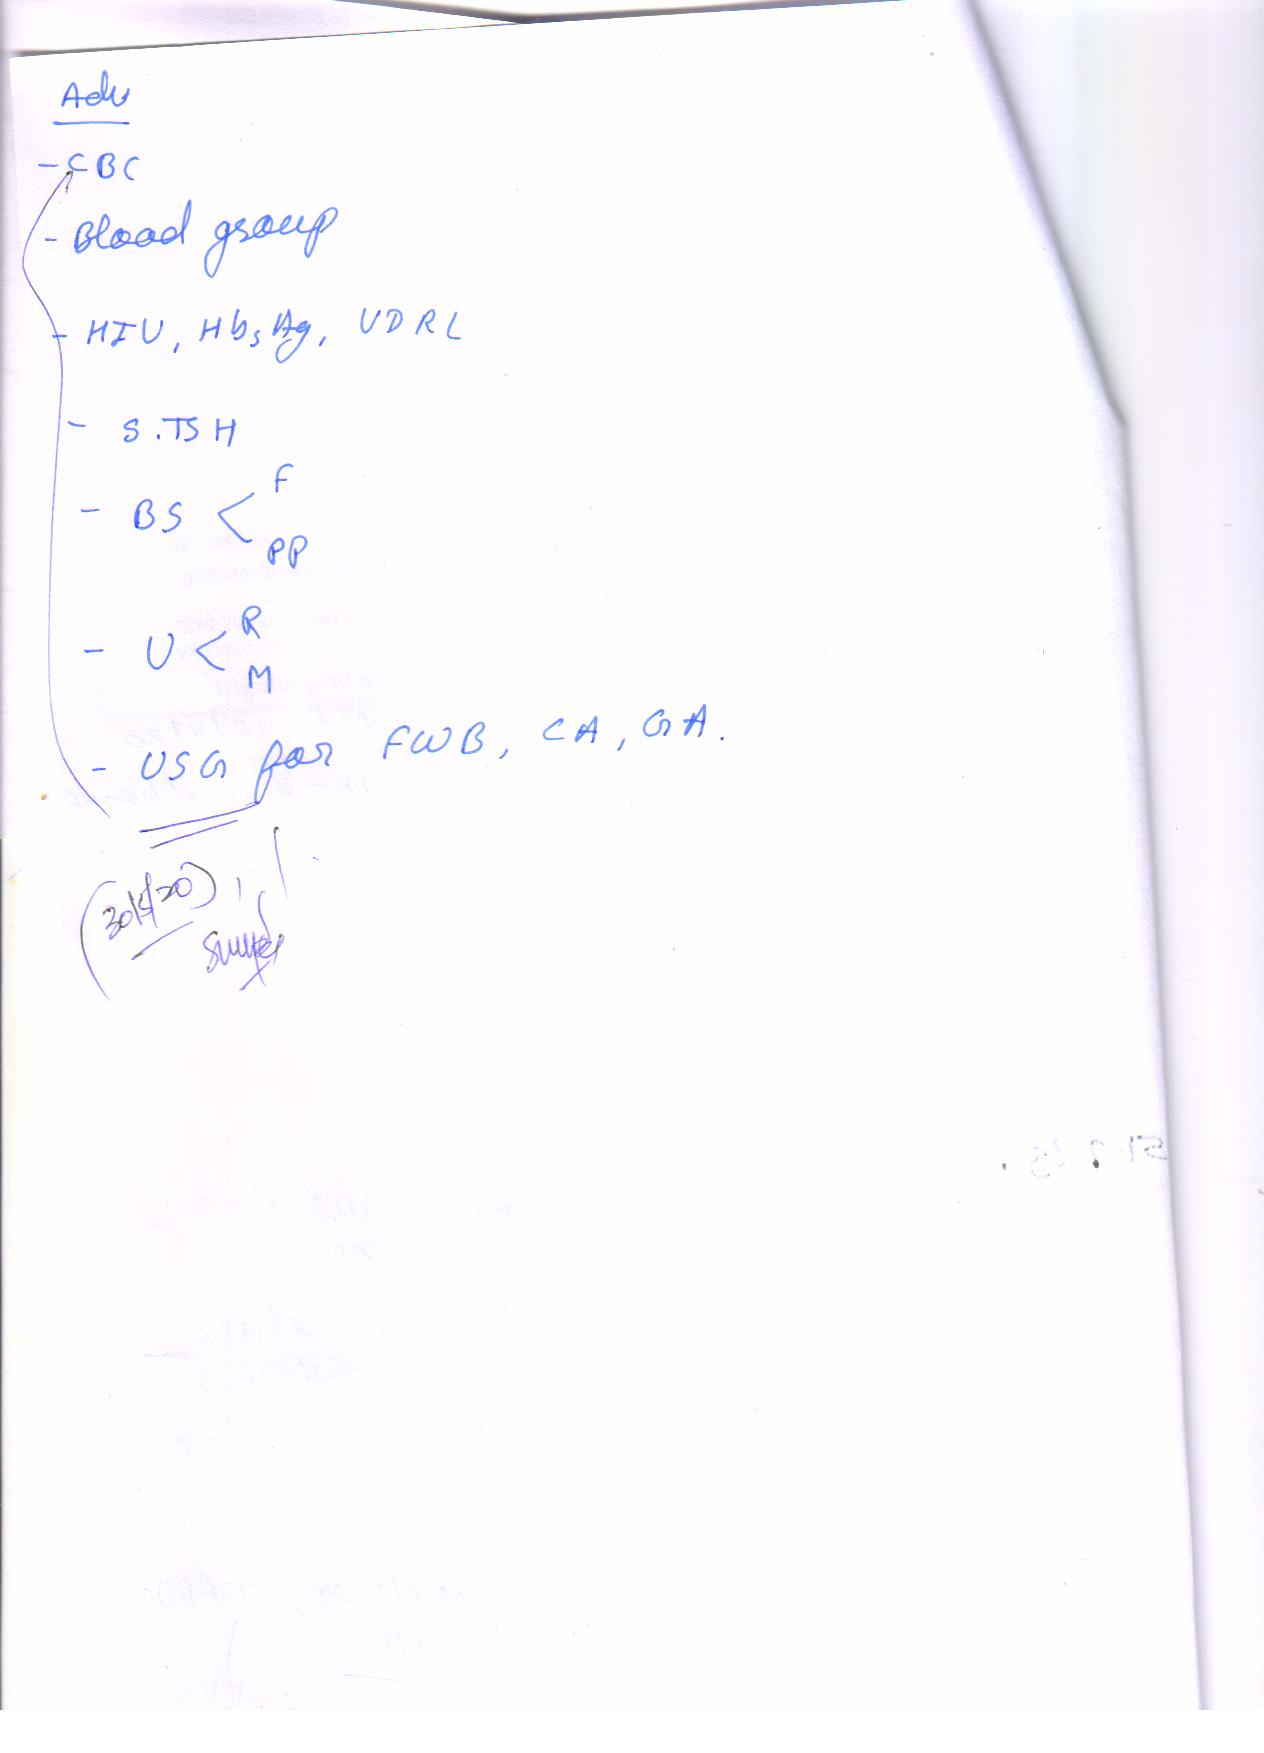 Adv
- CBC
- Blood group
- HIV, HbsAg, VDRL
- S.TSH
- BS < F PP
- U < R M
- USG for FWB, CA, GA.